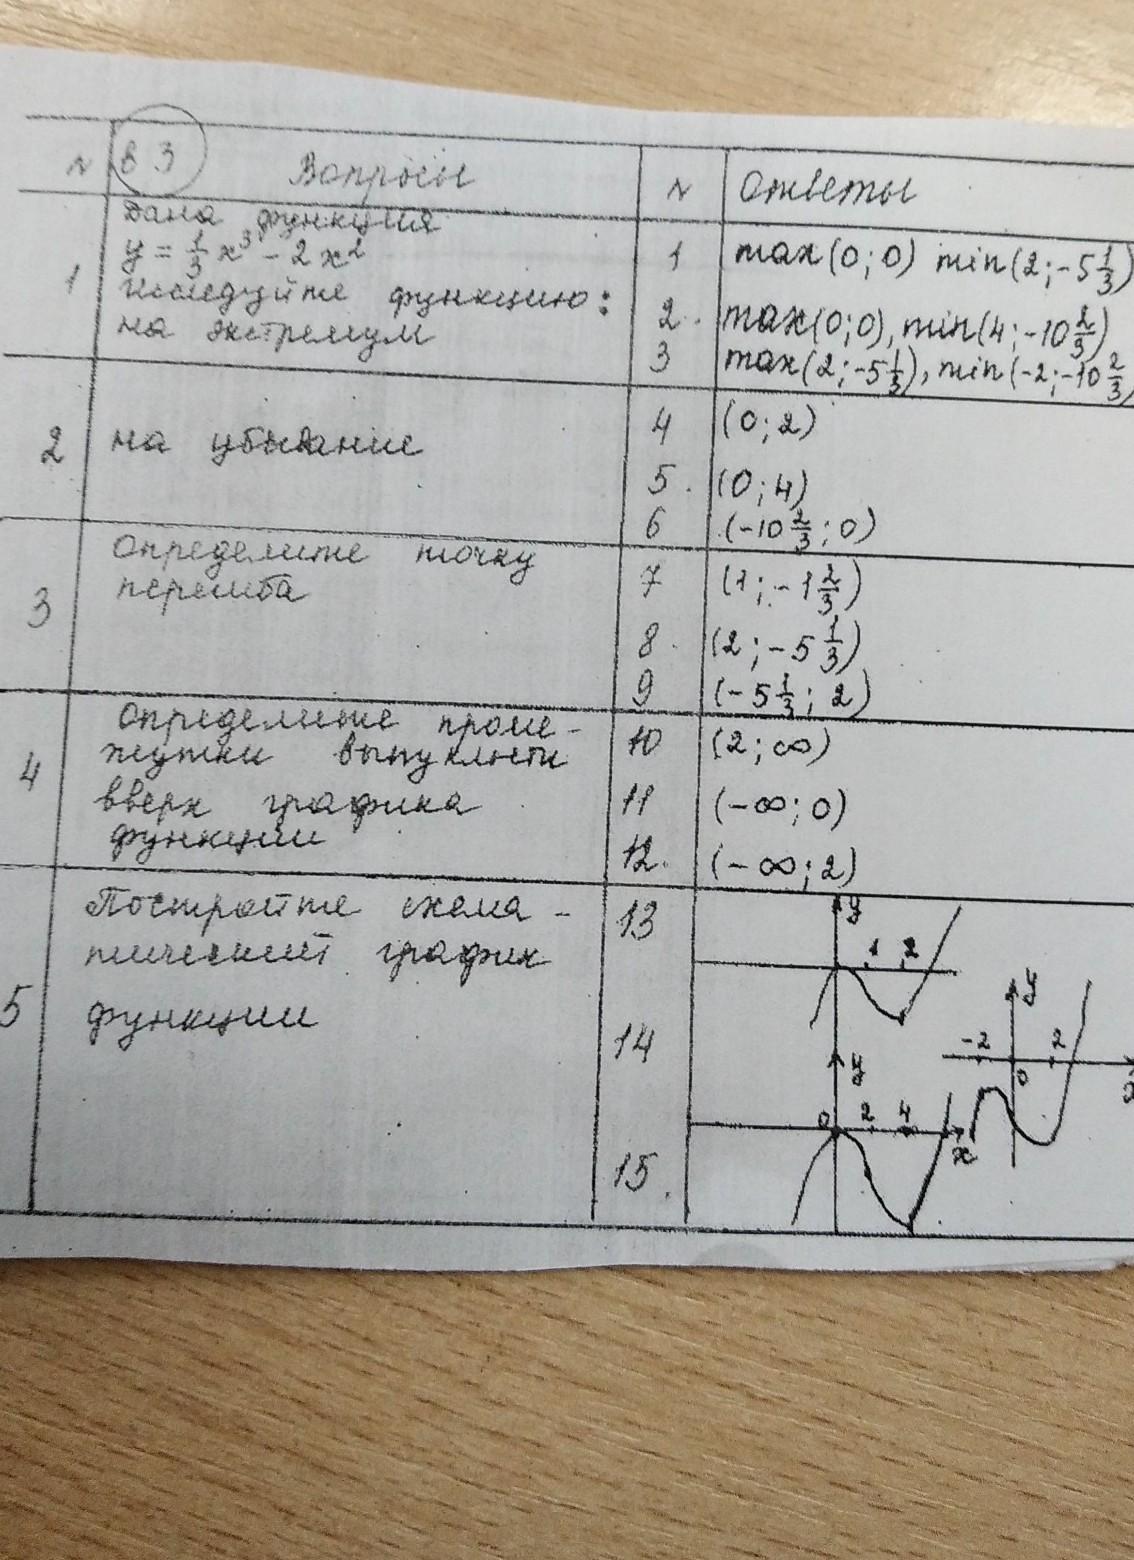 № в 3 Вопросы № Ответы
Дана функция
y = 1/3 x³ - 2x²
1 Исследуйте функцию:
на экстремум
1 max(0;0) min(2;-5 1/3)
2. max(0;0), min(4;-10 2/3)
3 max(2;-5 1/3), min(-2;-10 2/3)
2 на убывание
4 (0;2)
5. (0;4)
6 (-10 2/3; 0)
Определите точку
3 перегиба
7 (1; -1 2/3)
8. (2; -5 1/3)
9 (-5 1/3; 2)
Определите проме-
4 жутки выпуклости
вверх графика
функции
10 (2; ∞)
11 (-∞; 0)
12. (-∞; 2)
Постройте схема-
тический график
5 функции
13
y
1 2
14
y
-2 2
0
x
15.
y
0 2 4
x